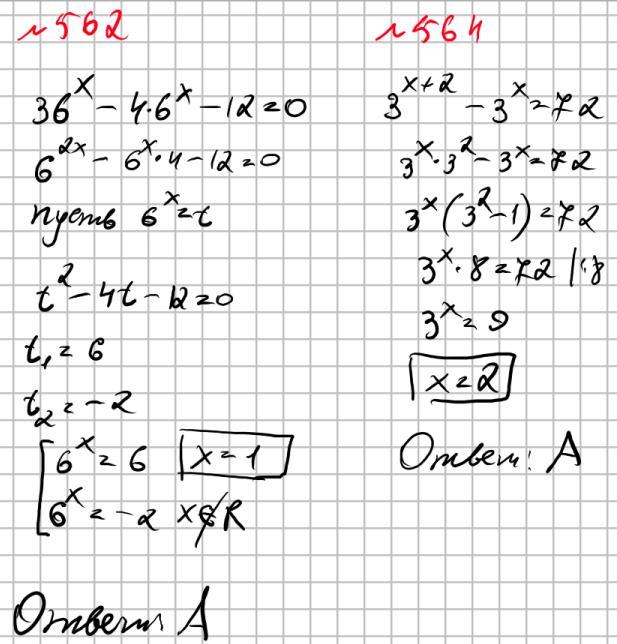 №562
36^x - 4·6^x - 12 = 0
6^{2x} - 6^x·4 - 12 = 0
пусть 6^x = t
t^2 - 4t - 12 = 0
t_1 = 6
t_2 = -2
[ 6^x = 6 x = 1
6^x = -2 x ∉ R
Ответ: А
№564
3^{x+2} - 3^x = 72
3^x·3^2 - 3^x = 72
3^x(3^2 - 1) = 72
3^x·8 = 72 |:8
3^x = 9
x = 2
Ответ: А